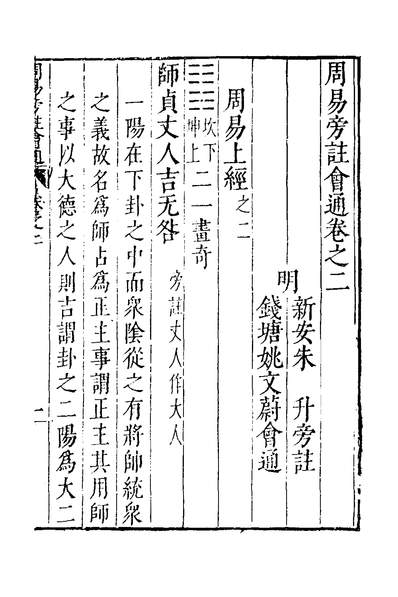 周易旁註會通卷之二
明
新安朱 升旁註
錢塘姚文蔚會通
周易上經之二
坎下
坤上
二一畫奇
師貞丈人吉无咎 旁註丈人作大人
一陽在下卦之中而衆陰從之有將師統衆
之義故名爲師占爲正主事謂正主其用師
之事以大德之人則吉謂卦之二陽爲大二
周易旁註會通